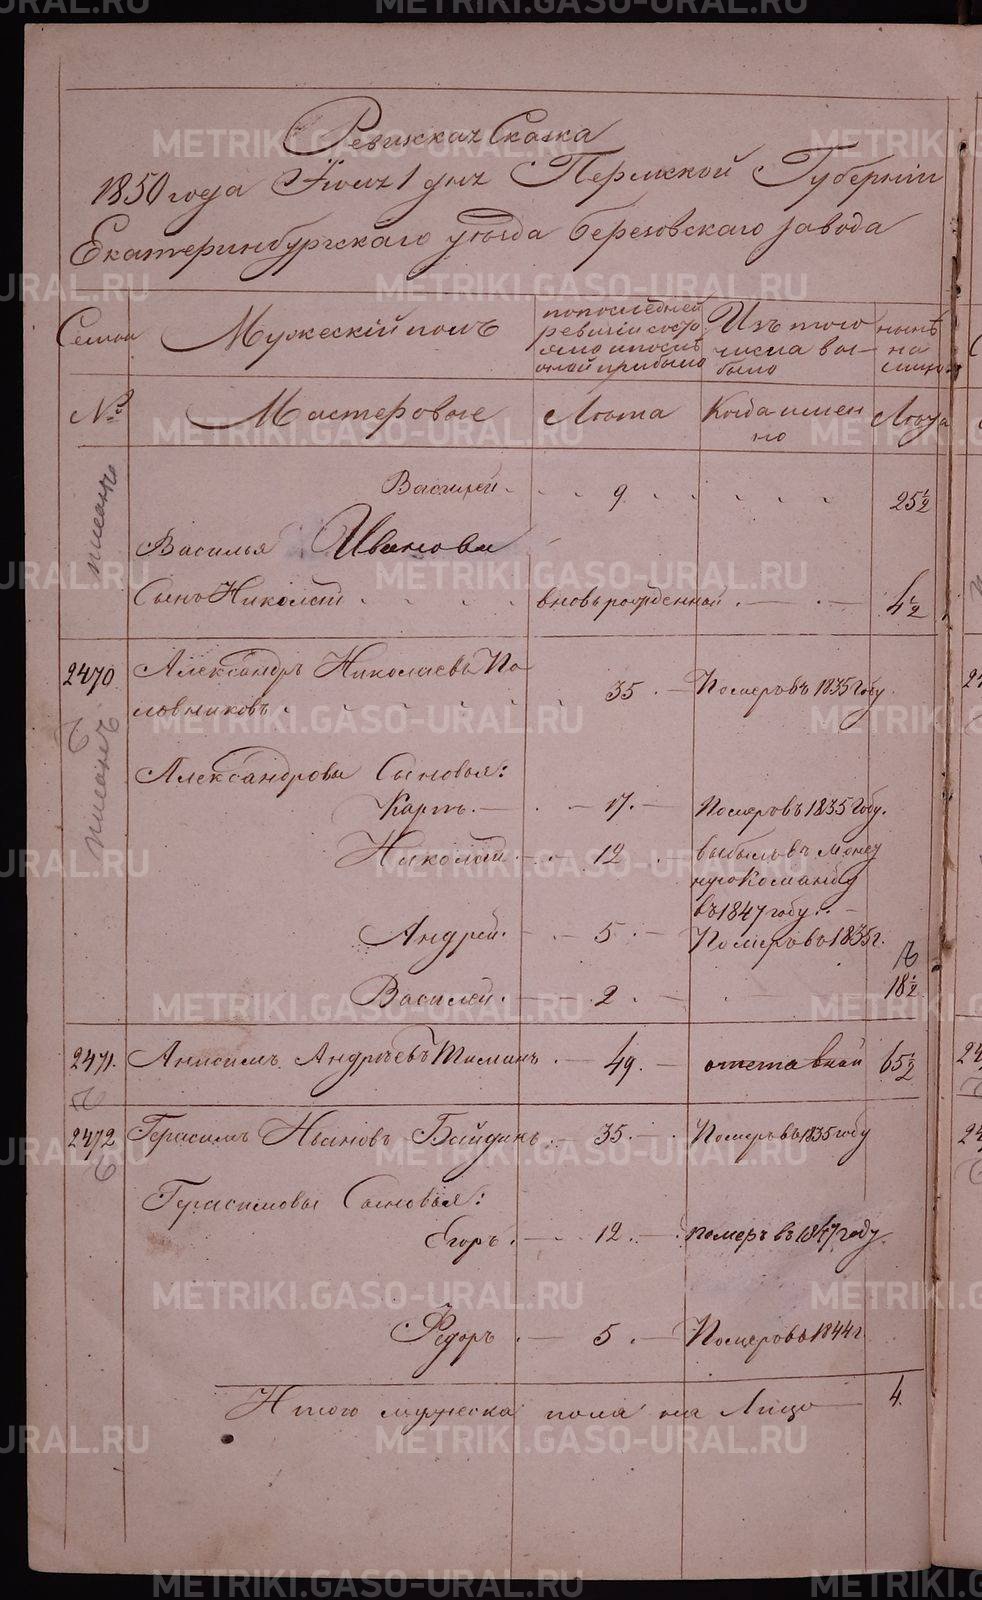 Ревижская Сказка
1850 года Июня 1 дня Пермской Губернии
Екатеринбургскаго уѣзда Березовскаго завода
Семьи
Мужескій полъ
по последней ревизіи состояло и после оной прибыло
Изъ того числа выбыло
нынѣ на лицо
№
Мастеровые
Лѣта
Когда именно
Лѣта
писанъ
Василей 9 25½
Василья Иванова
Сынъ Николай вновьрожденной 4½
2470 Александръ Николаевъ По-
ловниковъ 35 Померъ въ 1835 Году.
писанъ
Александровы Сыновья:
Карпъ 17. Померъ въ 1835 Году.
Николай 12 выбылъ въ
Команду
въ 1847 году.
Андрей 5 Померъ въ 1835 г.
Василей 2 18½
2471. Анисимъ Андрѣевъ 49. отставной 65½
2472 Герасимъ Ивановъ Байдинъ 35. Померъ въ 1835 году
Герасимовы Сыновья:
Егоръ 12. померъ въ 1847 году.
Федоръ 5. Померъ въ 1844 г
Итого мужеска пола на Лицо 4.
METRIKI.GASO-URAL.RU